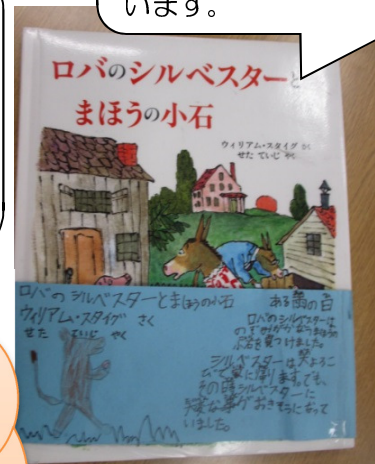 います。
ロバのシルベスターと
まほうの小石
ウィリアム・スタイグ さく
せた ていじ やく
ロバの シルベスターとまほうの小石
ウィリアム・スタイグ さく
せた ていじ やく
ある雨の日
ロバのシルベスターは
小石を見つけました。
シルベスターは大よろこ
びで家に帰ります。でも、
その時シルベスターに
大変な事がおきそうになって
いました。